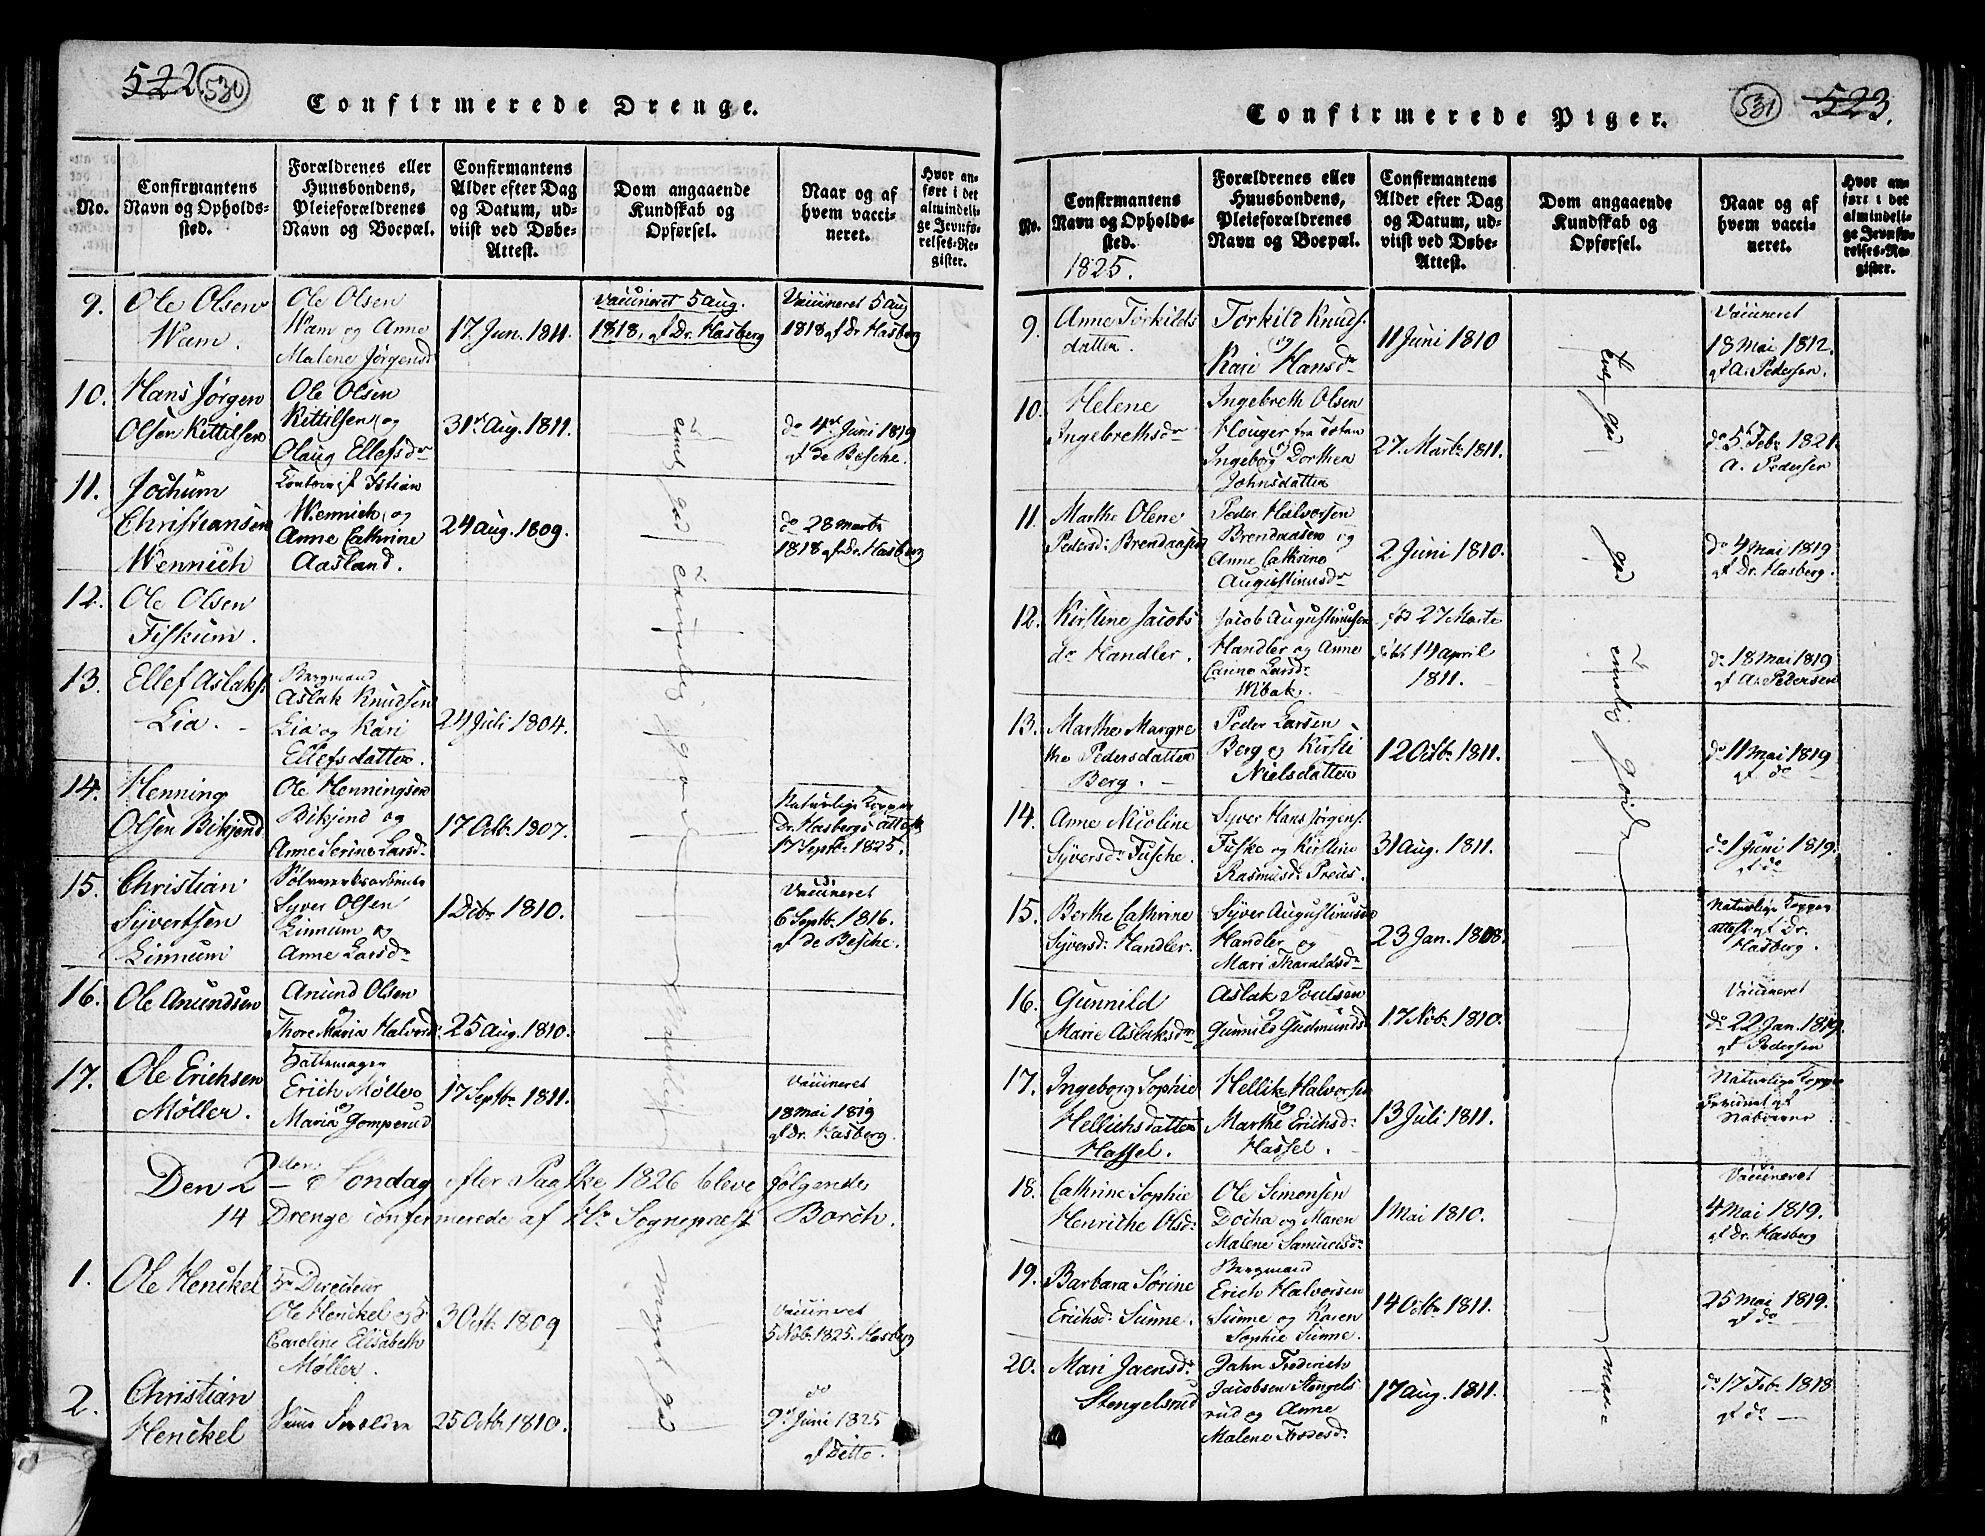 522. 530
Confirmerede Drenge.
No.
Confirmantens Navn og Opholds-sted.
Forældrenes eller Huusbondens, Pleieforældrenes Navn og Boepæl.
Confirmantens Alder efter Dag og Datum, ud-viist ved Døbe-Attest.
Dom angaaende Kundskab og Opførsel.
Naar og af hvem vacci-neret.
Hvor an-ført i det almindeli-ge Jevnfø-relses-Re-gister.
9. Ole Olsen
Wam.
Ole Olsen
Wam og Anne
Malene Jørgensd
17. Jun. 1811.
Vaccineret 5 Aug.
1818, af Dr. Hasberg
Vaccineret 5 Aug
1818 af Dr. Hasberg
10. Hans Jørgen
Olsen Kittilsen
Ole Olsen
Kittilsen og
Olaug Ellefsdr
31te Aug. 1811.
do 4de Juni 1819
af de Besche.
11. Jochum
Christiansen
Wennich
Wennich og
Anne Cathrine
Aasland.
24 Aug. 1809.
do 28 Marts
1818 af Dr. Hasberg
12. Ole Olsen
Fiskum.
13. Ellef Aslaks.
Lia.
Bergmand
Aslak Knudsen
Lia og Kari
Ellefsdatter.
24 Juli 1804.
14. Henning
Olsen Bikjend
Ole Henningsen
Bikjend og
Anne Serine Larsd.
17 Octb. 1807.
Naturlige Kopper
Dr. Hasbergs Attest
17 Septbr. 1825.
15. Christian
Syvertsen
Linnum
Sølvverksarbeider
Syver Olsen
Linnum og
Anne Larsdr
1 Decbr 1810.
Vaccineret
6 Septb. 1816.
af de Besche.
16. Ole Anundsen
Anund Olsen
Thore Maria Halvords.
25 Aug. 1810.
17. Ole Erichsen
Møller.
Hattemager
Erich Møller
og
Maria Gomperud
17 Septbr 1811.
Vaccineret
18 Mai 1819
af Dr. Hasberg.
Den 2den Søndag efter Paaske 1826 bleve følgende
14 Drenge confirmerede af Hr. Sognepræst Borch.
1. Ole Henckel
Hr. Directeur
Ole Henckel og
Caroline Elisabeth
Møller.
3 Octb. 1809
Vaccineret
5 Nob. 1825. Hasberg
meget god
2. Christian
Henckel
Samme Forældre
25 Octb. 1810.
do
9de Juni 1825
af Ditto.
531 523.
Confirmerede Piger.
No.
Confirmantens Navn og Opholds-sted.
1825.
Forældrenes eller Huusbondens, Pleieforældrenes Navn og Boepæl.
Confirmantens Alder efter Dag og Datum, ud-viist ved Døbe-Attest.
Dom angaaende Kundskab og Opførsel.
Naar og af hvem vacci-neret.
Hvor an-ført i det almindeli-ge Jevnfø-relses-Re-gister.
9. Anne Torkilds
datter.
Torkild Knuds.
og
Kari Hansdr
11 Juni 1810
Vaccineret
18 Mai 1812.
af A. Pedersen.
10. Helene
Ingebrethsdr
Ingebreth Olsen
Houger fra Toten
Ingeborg Dorthea
Johnsdatter
27. Marts 1811.
do 5 Febr. 1821.
A. Pedersen
11. Marthe Olene
Pedersd. Brendaasen
Peder Halvorsen
Brendaasen og
Anne Cathrine
Augustinusdr
2 Juni 1810.
do 4 Mai 1819
af Dr. Hasberg.
god
12. Kirstine Jacobs
dr Handler.
Jacob Augustinusen
Handler og Anne
Carine Larsdr
Wibak.
fød 27 Marts
døbt 14 April
1811.
do 18 Mai 1819
af A. Pedersen
13. Marthe Margre
the Pedersdatter
Berg.
Peder Larsen
Berg og Kirsti
Nielsdatter
12 Octbr 1811.
do 11 Mai 1819
af do
14. Anne Nicoline
Syversdr Fische.
Syver Hans Jørgens.
Fiske og Kirstine
Rasmusdr Preus.
31 Aug. 1811.
do 1 Juni 1819.
af do
15. Berthe Cathrine
Syversdr Handler.
Syver Augustinusen
Handler og
Mari Tharaldsdr
23 Jan. 1808.
Naturlige Kopper
Attest af Dr.
Hasberg.
16. Gunnild
Marie Aslaksdr
Aslak Poulsen
og
Gunnild Gudmundsd
17 Nobr. 1810.
Vaccineret
do 22 Jan. 1819.
af Pedersen
17. Ingeborg Sophie
Hellichsdatter
Hassel.
Hellik Halvorsen
og
Marthe Erichsdr
Hassel.
13 Juli 1811.
Naturlige Kopper
Naboerne
18. Cathrine Sophie
Henrithe Olsdr
Ole Simonsen
Docha og Maren
Malene Samuelsdr
1 Mai 1810.
Vaccineret
4 Mai 1819.
af Dr. Hasberg
19. Barbara Sørine
Erichsd. Sunne.
Bergmand
Erich Halvorsen
Sunne og Karen
Sophie Sunne.
14 Octbr 1811.
25 Mai 1819.
af do
20. Mari Jaensdr
Stengelsrud
Jahn Frederich
Jacobsen Stengels
rud og Anne
Malene Frodesdr
17 Aug. 1811.
do 17 Febr. 1818
af do